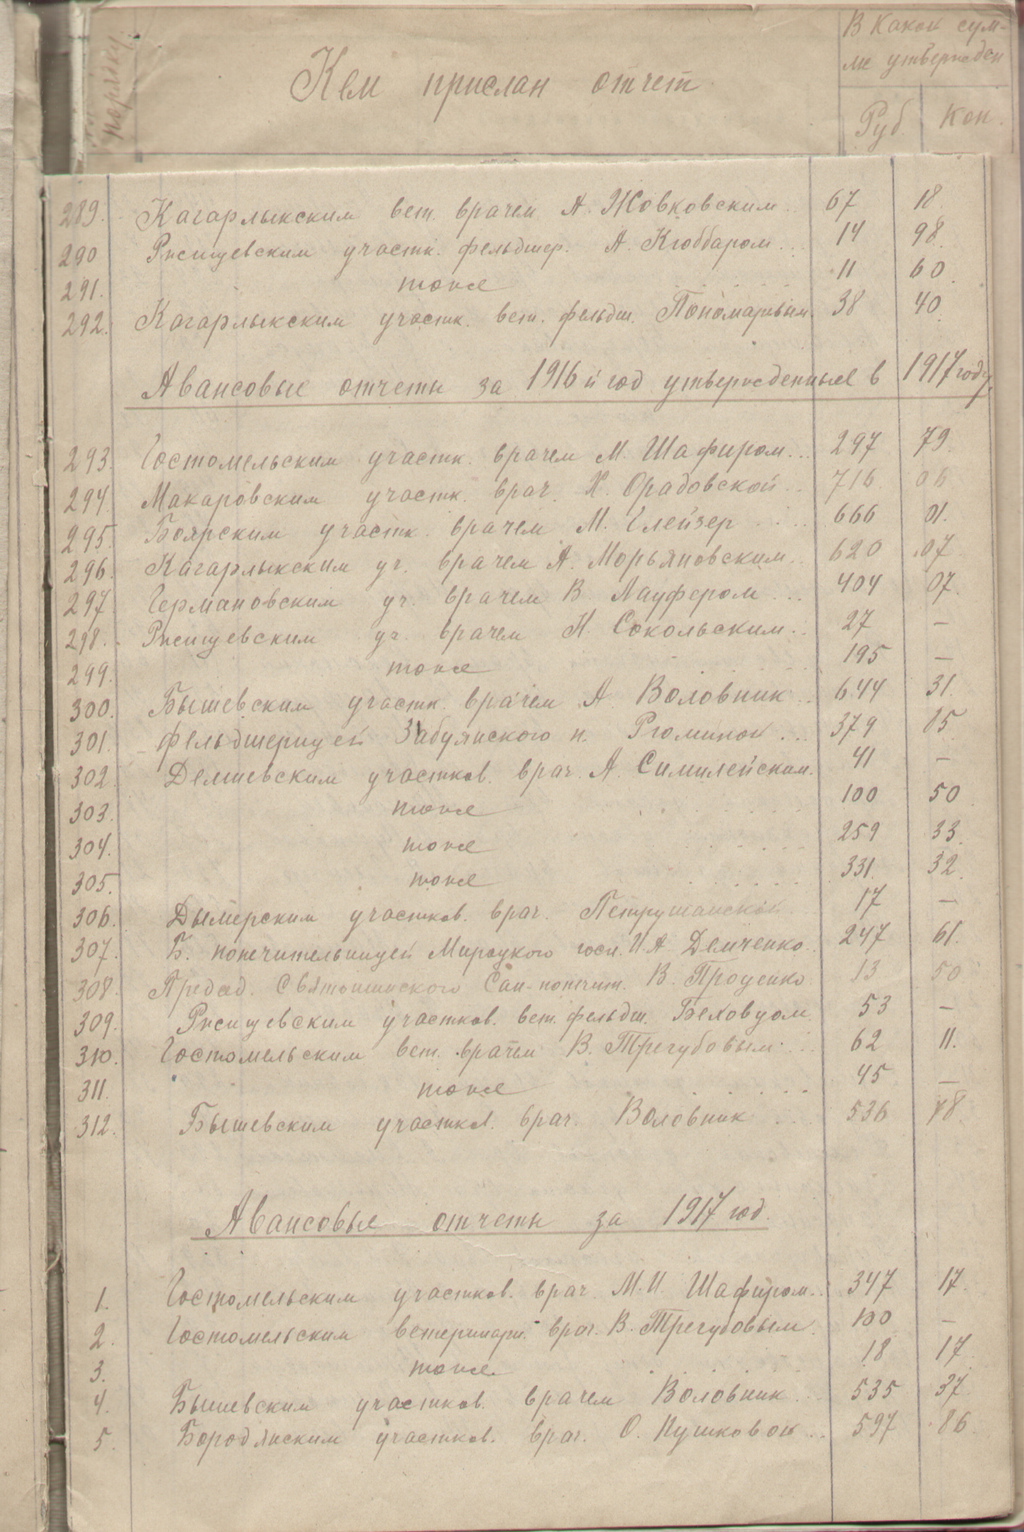 В какой сум-
ме утвержден
Кем прислан отчет
Руб. Коп.
289. Кагарлыкским вет. врачем А. Жовковским 67 18.
290 Ржищевским участк. фельдшер. А. Кюббаром... 14 98.
291. тоже 11 60.
292. Кагарлыкским участк. вет. фельдш. Пономаревым. 38 40.
Авансовые отчеты за 1916 й год утвержденные в 1917 году.
293. Гостомельским участк. врачем М. Шафиром... 297 79.
294. Макаровским участк. врач. Х. Орадовской.. 716
295 Боярским участк. врачем М. Глейзер 666 01.
296. Кагарлыкским уч. врачем А. Морьяновским.. 620 07.
297 Германовским уч. врачем В. Лауфером ... 404 07.
298. Ржищевским уч. врачем Н. Сокольским.. 27 —
299. тоже 195 —
300. Бышевским участк. врачем А. Воловник.. 644 31.
301. фельдшерицей Забуянского п. Рюминой ... 379 15
302. Демиевским участков. врач. А. Симилейским. 41 —
303. тоже 100 50
304. тоже 259 33.
305. тоже 331. 32.
306. Дымерским участков. врач. 17 —
307. Б. попечительницей Мироцкого госп. И. А Демченко. 247 61.
308. Председ. Святошинского Сан-попечит. В. Проценко 13 50
309. Ржищевским участков. вет. фельдш. Беховцом 53 —
310. Гостомельским вет. врачем В. Трегубовым.. 62 11.
311. тоже 45 —
312. Бышевским участков. врач. Воловник 536
Авансовые отчеты за 1917 год.
1. Гостомельским участков. врач. М. И. Шафиром.. 347 17.
2. Гостомельским ветеринарн. врач. В. Трегубовым. 100 —
3. тоже 18 17
4. Бышевским участков. врачем Воловник.. 535 37
5. Бородянским участков. врач. О. Пушковой... 597 86